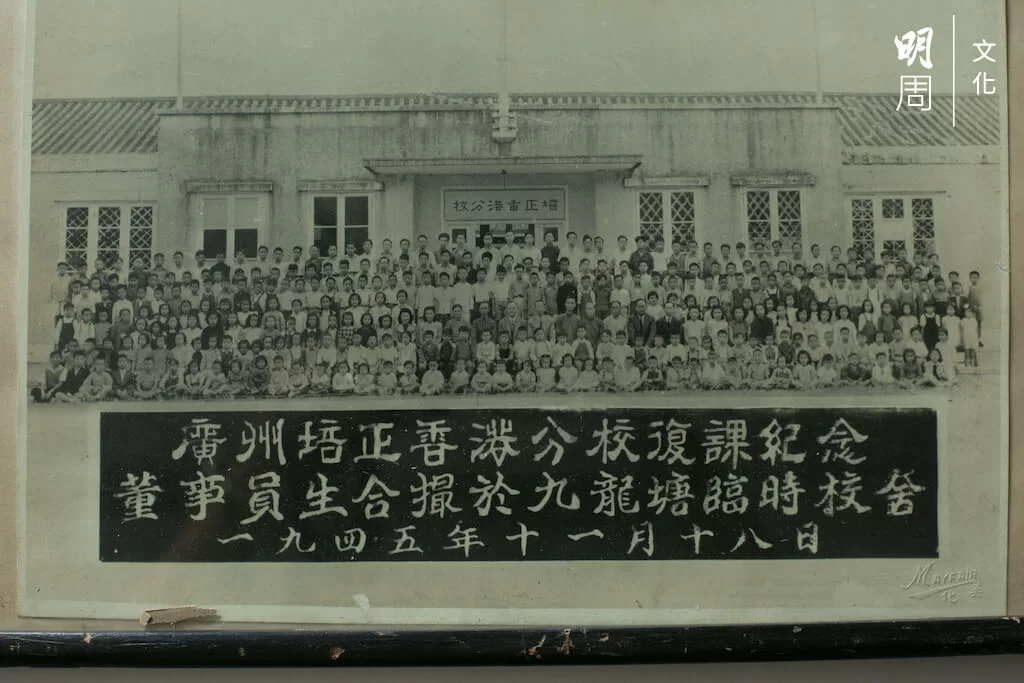 明周
文化
培正香港分校
廣州培正香港分校復課紀念
董事員生合撮於九龍塘臨時校舍
一九四五年十一月十八日
MAYFAIR